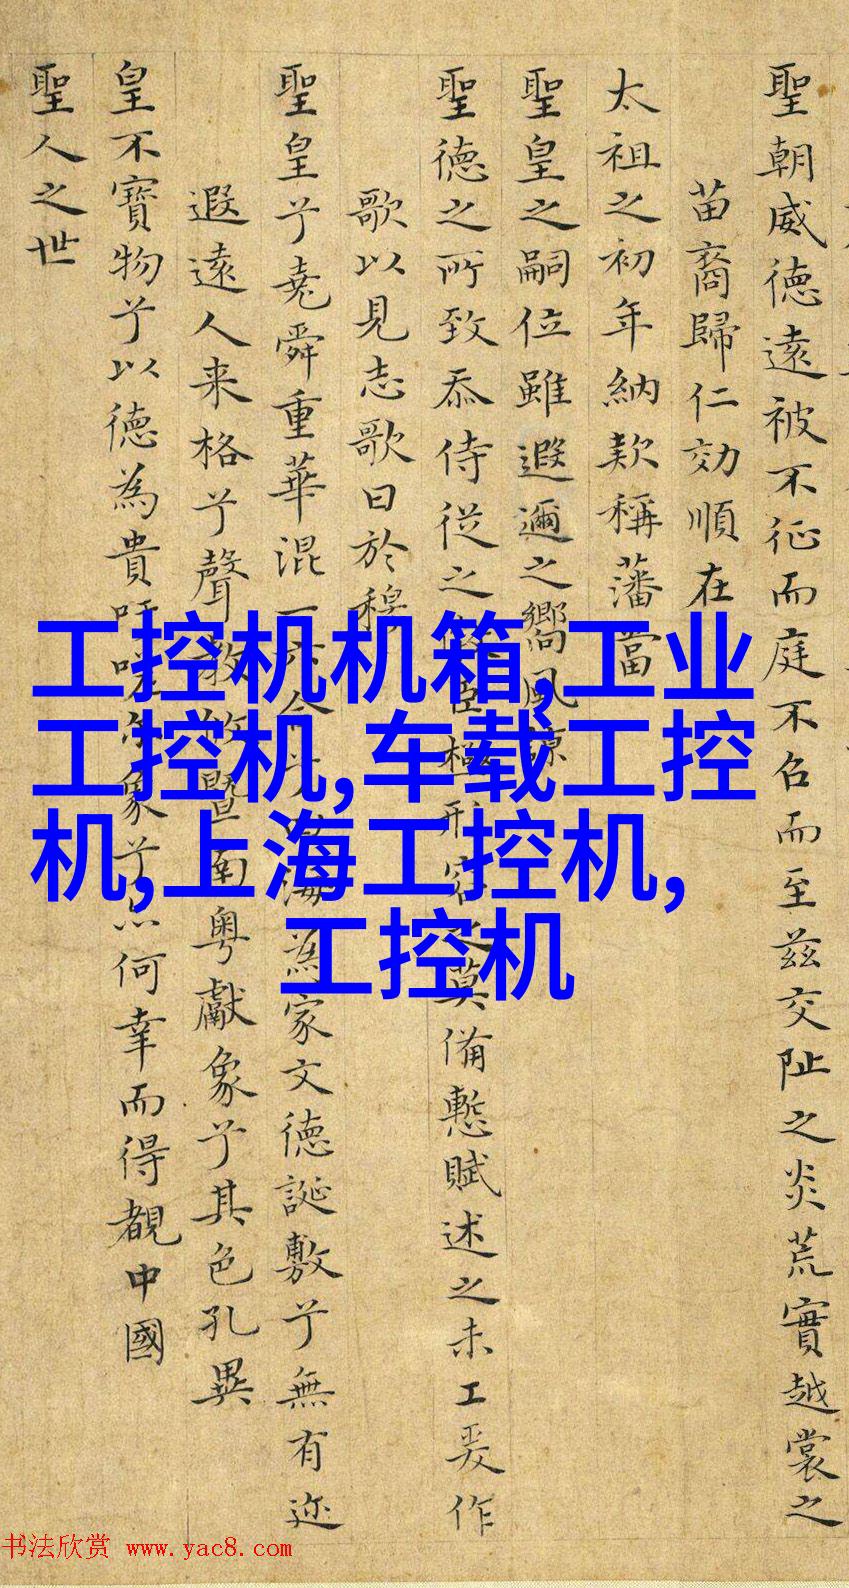 聖朝威德遠被不征而庭不召而至茲交阯之炎荒實越裳之
苗裔歸仁効順在
太祖之初年納款稱藩當
聖皇之嗣位雖遐邇之嚮風諒
聖德之所致忝侍從之臣極形容之莫備慙賦述之未工爰作
歌以見志歌曰於穆
聖皇兮堯舜重華混一六合兮四海為家文德誕敷兮無有迩
遐遠人来格兮聲教攸暨南粤獻象兮其色孔異
皇不寶物兮以德為貴吁嗟象兮亦何幸而得覩中國
聖人之世
工控机机箱,工业
工控机,车载工控
机,上海工控机,
工控机
书法欣赏 www.yac8.com